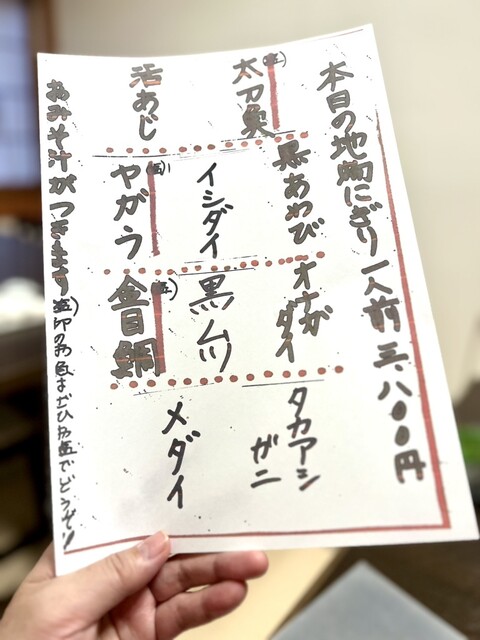 本日の地物にぎり一人前 三、八〇〇円
太刀魚(塩)
活あじ
黒あわび
イシダイ
ヤガラ(塩)
オナガ
ダイ
黒ムツ
金目鯛(塩)
タカアシ
ガニ
メダイ
おみそ汁がつきます (塩)印のお魚はぜひお塩でどうぞ!!